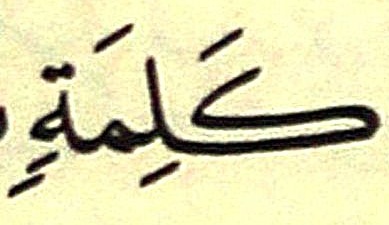 كَلِمَةٍ